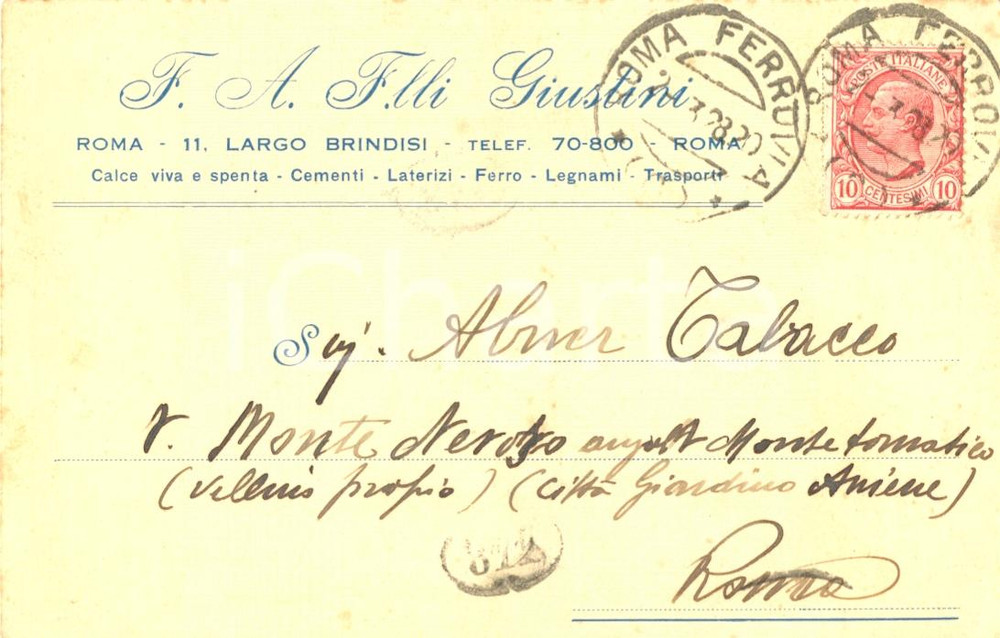 F. A. F.lli Giustini
ROMA - 11, LARGO BRINDISI - TELEF. 70-800 - ROMA
Calce viva e spenta - Cementi - Laterizi - Ferro - Legnami - Trasporti
ROMA FERROVIA
ROMA FERROVIA
POSTE ITALIANE
10 CENTESIMI 10
iCharta
Sig. Abner Tabacco
V. Monte Nevoso Monte tomatico
(villino propio) (Città Giardino Aniene)
Roma